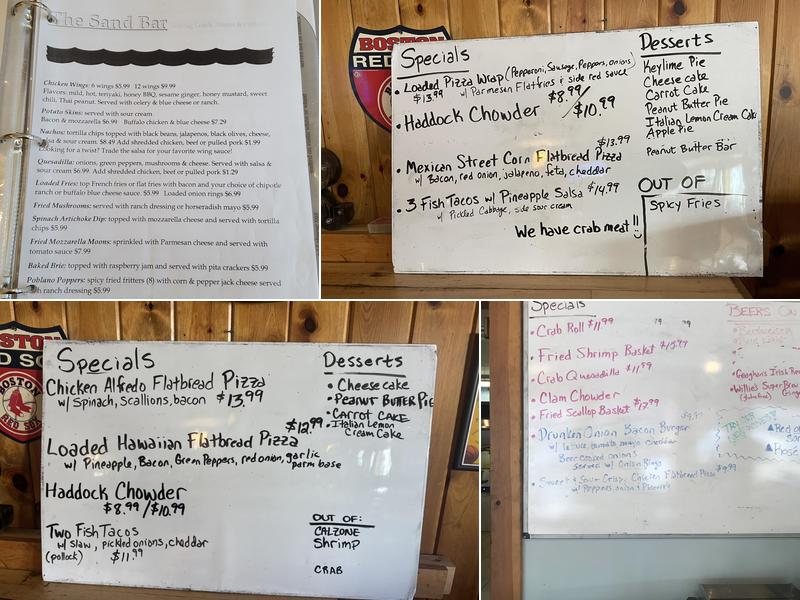 The Sand Bar
Chicken Wings: 6 wings $5.99 12 wings $9.99
Flavors: mild, hot, teriyaki, honey BBQ, sesame ginger, honey mustard, sweet
chili, Thai peanut. Served with celery & blue cheese or ranch.
Potato Skins: served with sour cream
Bacon & mozzarella $6.99 Buffalo chicken & blue cheese $7.29
Nachos: tortilla chips topped with black beans, jalapenos, black olives, cheese,
salsa & sour cream. $8.49 Add shredded chicken, beef or pulled pork $1.99
Looking for a twist? Trade the salsa for your favorite wing sauce!
Quesadilla: onions, green peppers, mushrooms & cheese. Served with salsa &
sour cream $6.99 Add shredded chicken, beef or pulled pork $1.29
Loaded Fries: top French fries or flat fries with bacon and your choice of chipotle
ranch or buffalo blue cheese sauce. $5.99 Loaded onion rings $6.99
Fried Mushrooms: served with ranch dressing or horseradish mayo $5.99
Spinach Artichoke Dip: topped with mozzarella cheese and served with tortilla
chips $5.99
Fried Mozzarella Moons: sprinkled with Parmesan cheese and served with
tomato sauce $7.99
Baked Brie: topped with raspberry jam and served with pita crackers $5.99
Poblano Poppers: spicy fried fritters (8) with corn & pepper jack cheese served
ranch dressing $5.99
BOSTON
RED
Specials
• Loaded Pizza Wrap (Pepperoni, Sausage, Peppers, onions)
$13.99 w/ Parmesan Flatfries & side red sauce
• Haddock Chowder $8.99/$10.99
$13.99
• Mexican Street Corn Flatbread Pizza
w/ Bacon, red onion, Jalapeno, feta, cheddar
• 3 Fish Tacos w/ Pineapple Salsa $14.99
w/ Pickled Cabbage, side sour cream
We have crab meat!!
Desserts
Keylime Pie
Cheesecake
Carrot Cake
Peanut Butter Pie
Italian Lemon Cream Cake
Apple Pie
Peanut Butter Bar
OUT OF
SPICY FRIES
BOSTON
RED SOX
Specials
Chicken Alfredo Flatbread Pizza
w/ Spinach, Scallions, bacon $13.99
$12.99
Loaded Hawaiian Flatbread Pizza
w/ Pineapple, Bacon, Green Peppers, red onion, garlic
parm base
Haddock Chowder
$8.99/$10.99
Two Fish Tacos
w/ slaw, pickled onions, cheddar
(pollock) $11.99
Desserts
• Cheesecake
• Peanut Butter Pie
• Carrot Cake
• Italian Lemon
Cream Cake
OUT OF:
CALZONE
Shrimp
CRAB
Specials
• Crab Roll $11.99
• Fried Shrimp Basket
• Crab Quesadilla $11.99
• Clam Chowder
• Fried Scallop Basket $17.99
• Drunken Onion Bacon Burger
w/ lettuce, tomato mayo cheddar
Beer cooked onions
served w/ Onion Rings
• Sweet & Sour Crispy Chicken Flatbread Pizza $9.99
w/ Peppers, onion &
BEERS ON
Budweiser